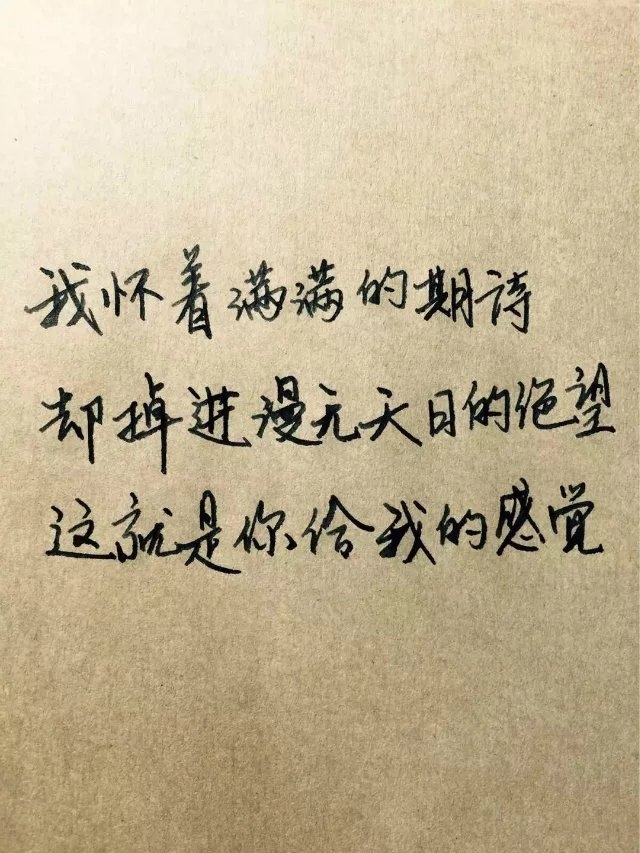 我怀着满满的期待
却掉进漫无天日的绝望
这就是你给我的感觉